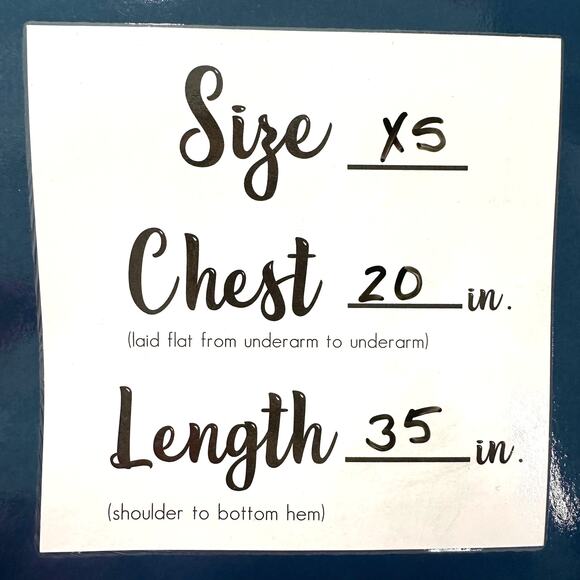 Size XS
Chest 20 in.
(laid flat from underarm to underarm)
Length 35 in.
(shoulder to bottom hem)